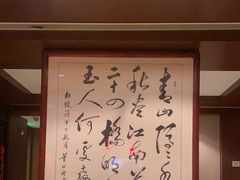 青山隱隱水
秋盡江南草
二十四橋明
玉人何處教
杜牧詩